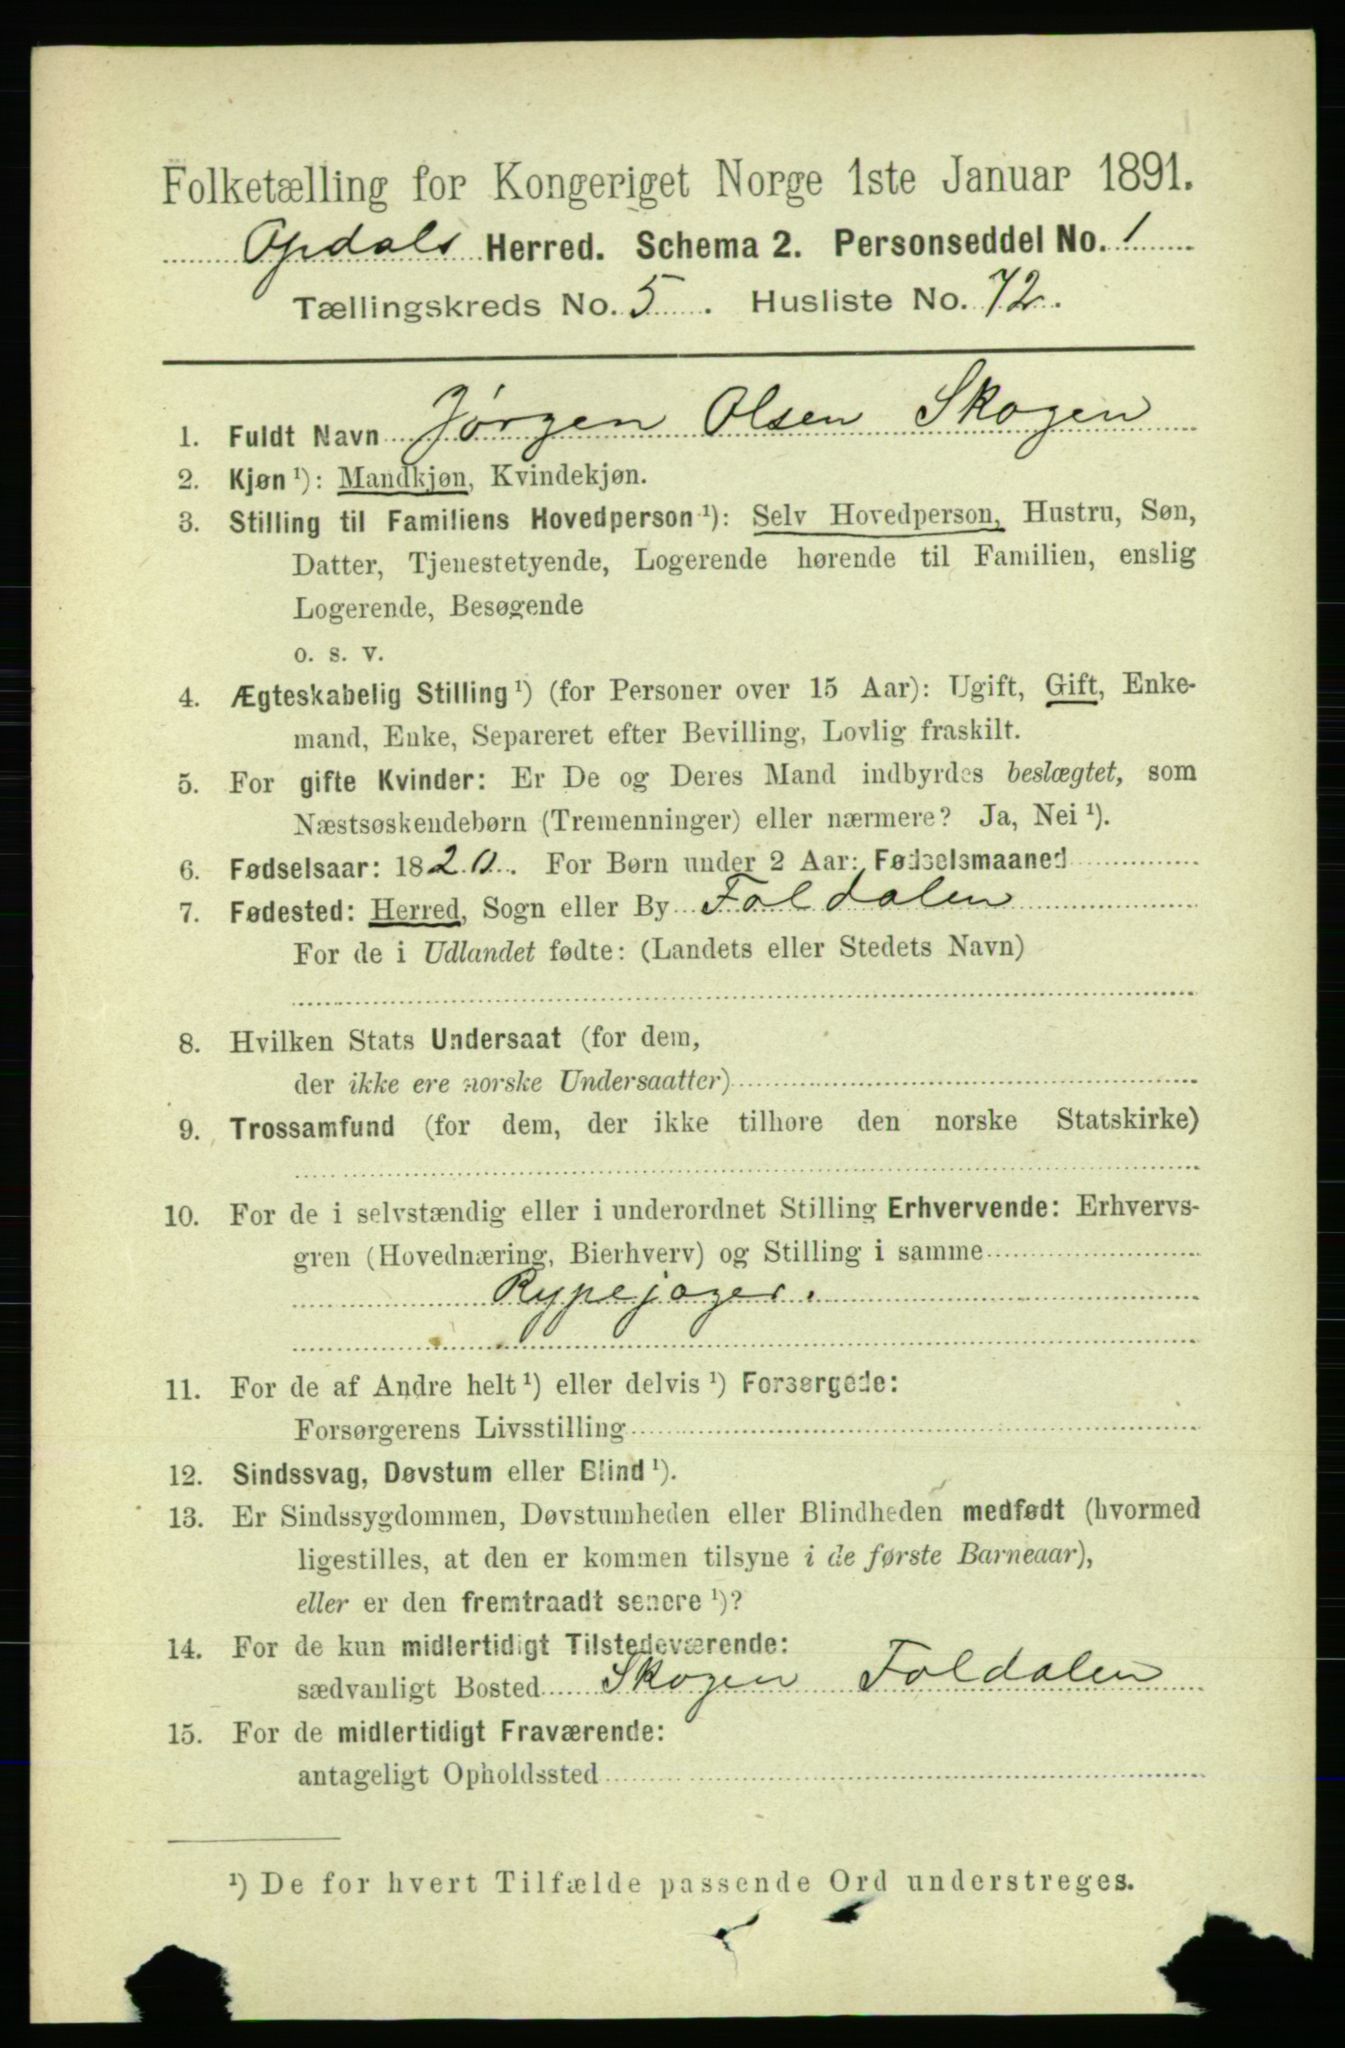 Folketælling for Kongeriget Norge 1ste Januar 1891.
Opdals Herred. Schema 2. Personseddel No. 1
Tællingskreds No. 5. Husliste No. 72.
1. Fuldt Navn Jørgen Olsen Skogen
2. Kjøn ¹): Mandkjøn, Kvindekjøn.
3. Stilling til Familiens Hovedperson ¹): Selv Hovedperson, Hustru, Søn,
Datter, Tjenestetyende, Logerende hørende til Familien, enslig
Logerende, Besøgende
o. s. v.
4. Ægteskabelig Stilling ¹) (for Personer over 15 Aar): Ugift, Gift, Enke-
mand, Enke, Separeret efter Bevilling, Lovlig fraskilt.
5. For gifte Kvinder: Er De og Deres Mand indbyrdes beslægtet, som
Næstsøskendebørn (Tremenninger) eller nærmere? Ja, Nei ¹).
6. Fødselsaar: 1820. For Børn under 2 Aar: Fødselsmaaned
7. Fødested: Herred, Sogn eller By Foldalen
For de i Udlandet fødte: (Landets eller Stedets Navn)
8. Hvilken Stats Undersaat (for dem,
der ikke ere norske Undersaatter)
9. Trossamfund (for dem, der ikke tilhore den norske Statskirke)
10. For de i selvstændig eller i underordnet Stilling Erhvervende: Erhvervs-
gren (Hovednæring, Bierhverv) og Stilling i samme
Rypejæger.
11. For de af Andre helt ¹) eller delvis ¹) Forsørgede:
Forsørgerens Livsstilling
12. Sindssvag, Døvstum eller Blind ¹).
13. Er Sindssygdommen, Døvstumheden eller Blindheden medfødt (hvormed
ligestilles, at den er kommen tilsyne i de første Barneaar),
eller er den fremtraadt senere ¹)?
14. For de kun midlertidigt Tilstedeværende:
sædvanligt Bosted Skogen Foldalen
15. For de midlertidigt Fraværende:
antageligt Opholdssted
¹) De for hvert Tilfælde passende Ord understreges.